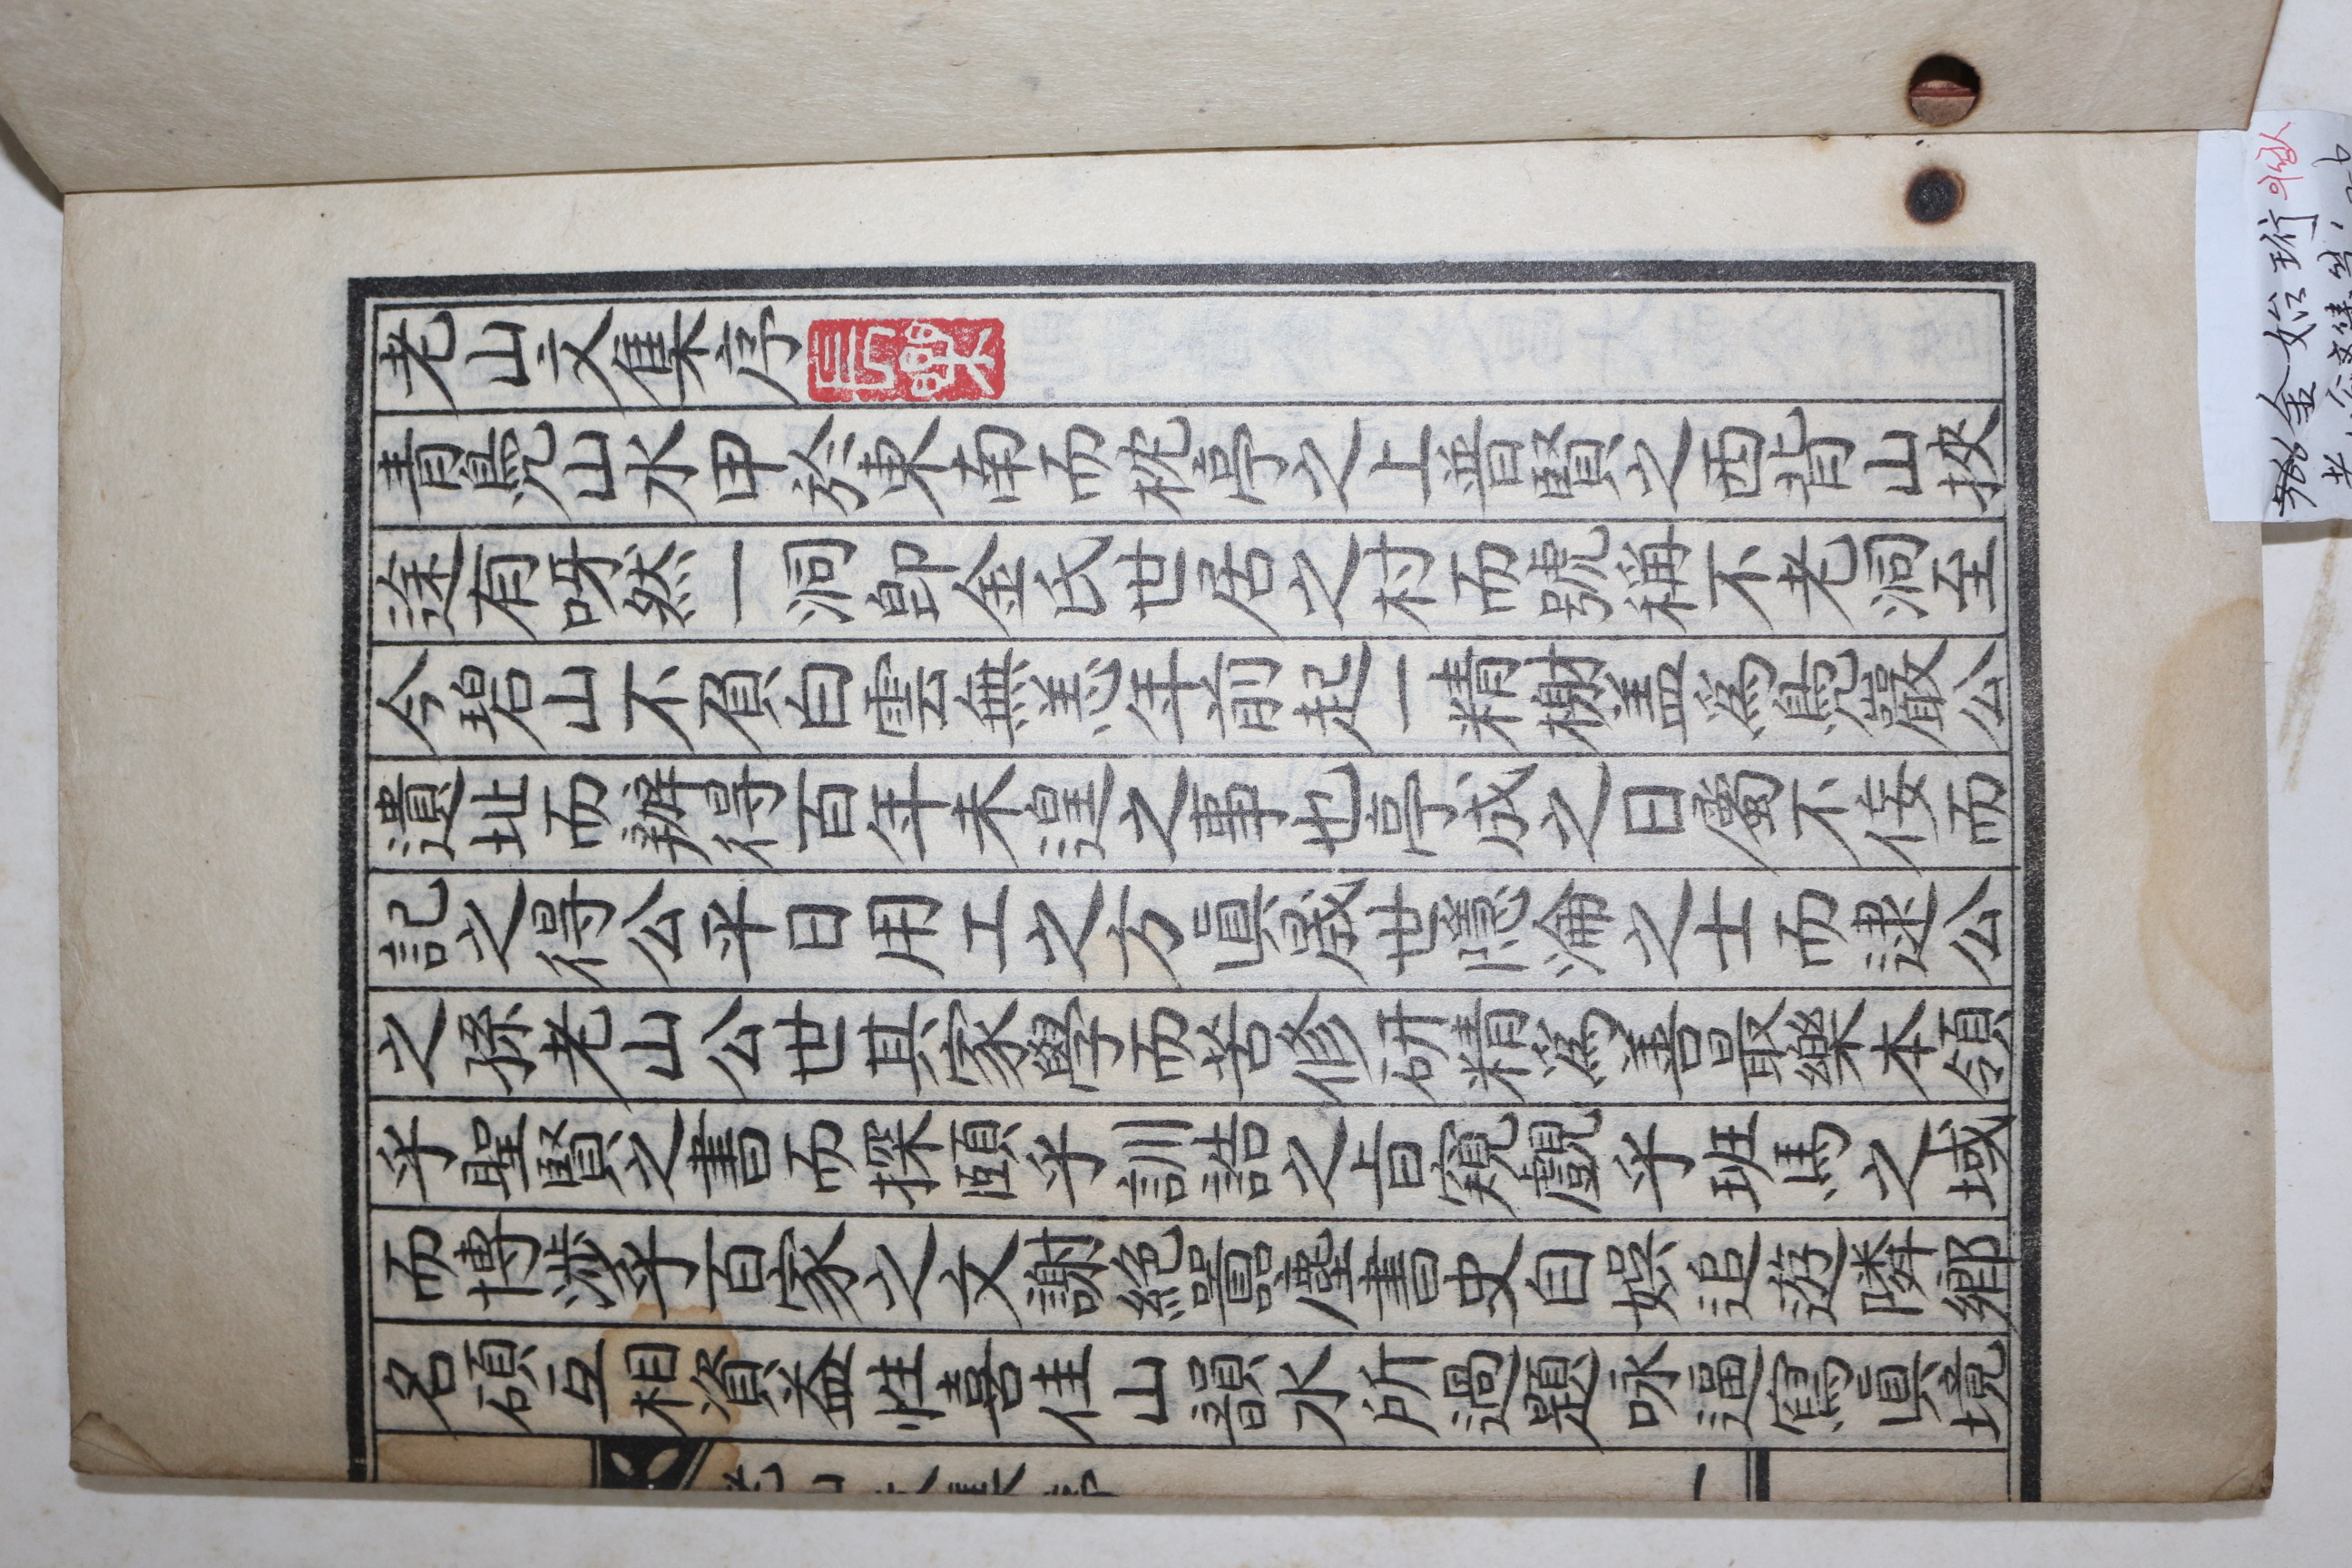 老山文集序
長樂
青鳧山水甲於東南而枕亭之上普賢之西背山挾
途有呀然一洞卽金氏世居之村而號稱不老洞至
今碧山不負白雲無恙年前起一精榭盖爲鳧巖公
遺址而辦得百年未遑之事也亭成之日屬不侫而
記之得公平日用工之方眞晟世隱淪之士而逮公
之孫老山公世其家學而苦修硏精爲善最樂本領
乎聖賢之書而探賾乎訓誥之旨窺覰乎班馬之域
而博涉乎百家之文謝絶囂塵書史自娛追遊隣鄉
名碩互相資益性喜佳山韻水所過題咏逼寫眞境
老山文集序
一
金始珩